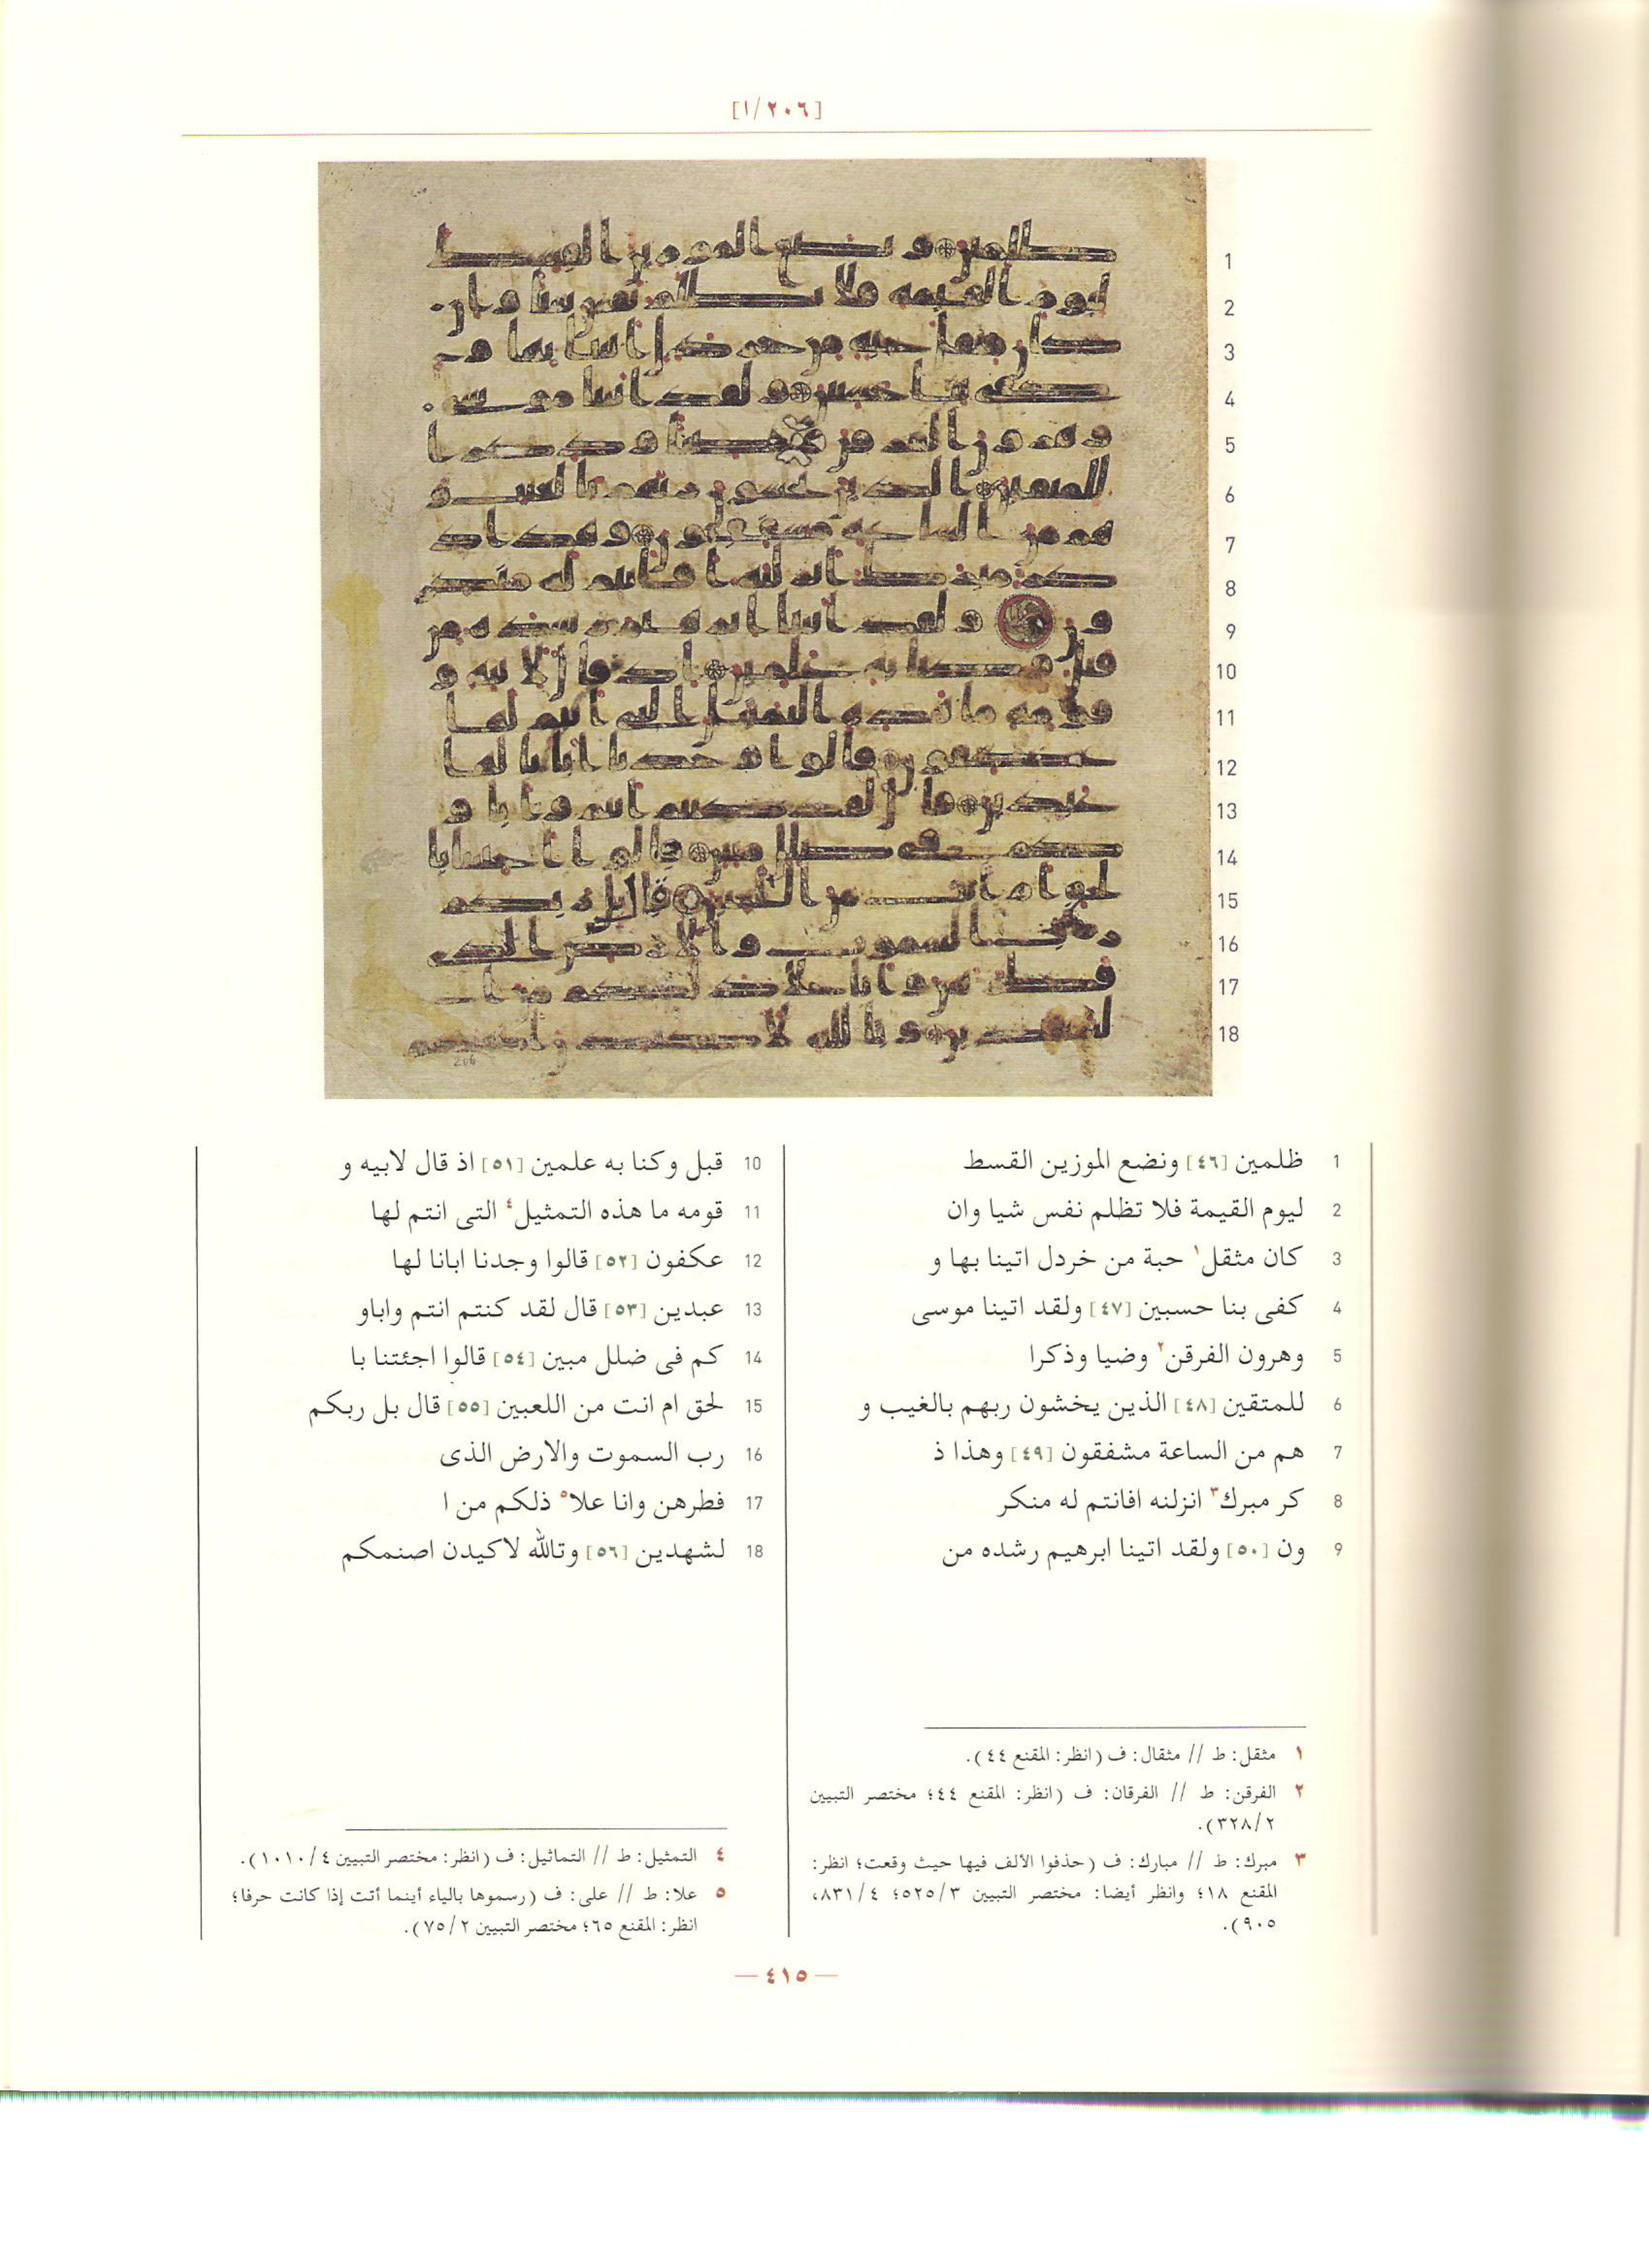 [٢٠٦/١]
1 ظلمين [٤٦] ونضع الموزين القسط
2 ليوم القيمة فلا تظلم نفس شيا وان
3 كان مثقل١ حبة من خردل اتينا بها و
4 كفى بنا حسبين [٤٧] ولقد اتينا موسى
5 وهرون الفرقن٢ وضيا وذكرا
6 للمتقين [٤٨] الذين يخشون ربهم بالغيب و
7 هم من الساعة مشفقون [٤٩] وهذا ذ
8 كر مبرك٣ انزلنه افانتم له منكر
9 ون [٥٠] ولقد اتينا ابرهيم رشده من
10 قبل وكنا به علمين [٥١] اذ قال لابيه و
11 قومه ما هذه التمثيل٤ التى انتم لها
12 عكفون [٥٢] قالوا وجدنا ابانا لها
13 عبدين [٥٣] قال لقد كنتم انتم واباو
14 كم فى ضلل مبين [٥٤] قالوا اجئتنا با
15 لحق ام انت من اللعبين [٥٥] قال بل ربكم
16 رب السموت والارض الذى
17 فطرهن وانا علا٥ ذلكم من ا
18 لشهدين [٥٦] وتالله لاكيدن اصنمكم
١ مثقل: ط // مثقال: ف (انظر: المقنع ٤٤).
٢ الفرقن: ط // الفرقان: ف (انظر: المقنع ٤٤؛ مختصر التبيين
٣٢٨/٢).
٣ مبرك: ط // مبارك: ف (حذفوا الألف فيها حيث وقعت؛ انظر:
المقنع ١٨؛ وانظر أيضا: مختصر التبيين ٥٢٥/٣؛ ٨٣١/٤،
٩٠٥).
٤ التمثيل: ط // التماثيل: ف (انظر: مختصر التبيين ١٠١٠/٤).
٥ علا: ط // على: ف (رسموها بالياء أينما أتت إذا كانت حرفا؛
انظر: المقنع ٦٥؛ مختصر التبيين ٧٥/٢).
— ٤١٥ —